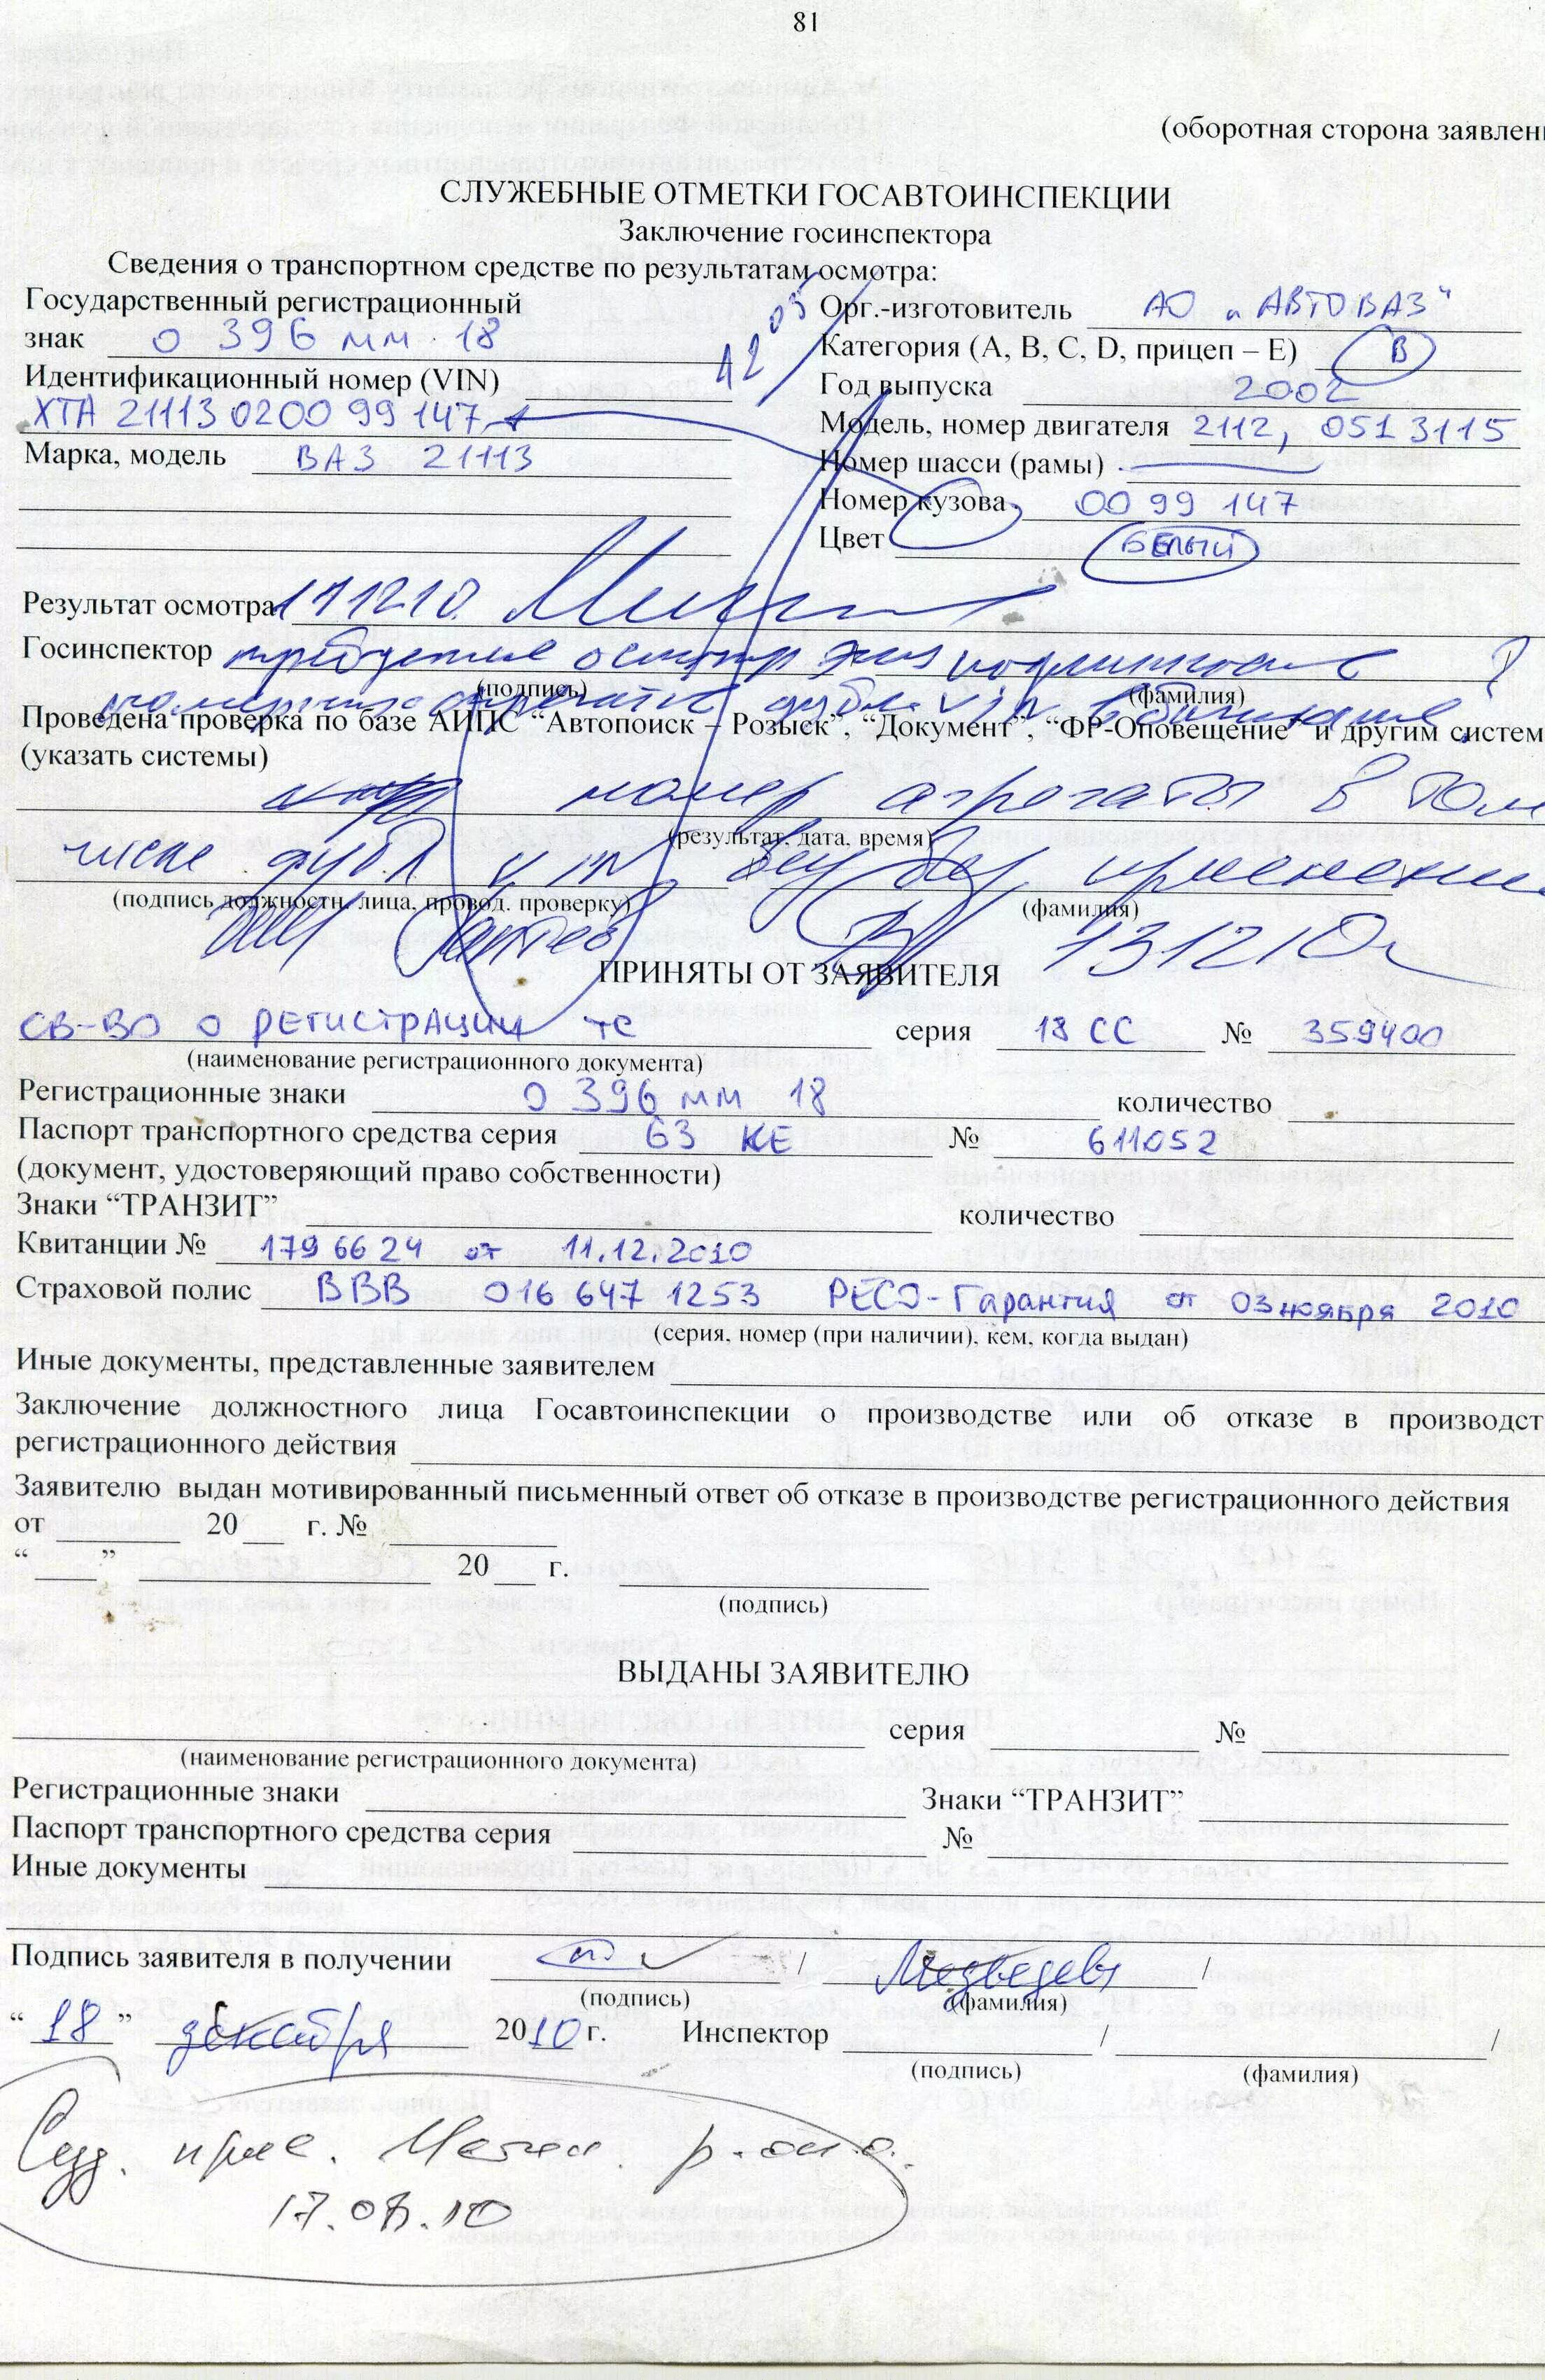 81
(оборотная сторона заявлен
СЛУЖЕБНЫЕ ОТМЕТКИ ГОСАВТОИНСПЕКЦИИ
Заключение госинспектора
Сведения о транспортном средстве по результатам осмотра:
Государственный регистрационный
знак о 396 мм 18
Идентификационный номер (VIN)
ХТА 21113 0200 99 147
Марка, модель ВАЗ 21113
12 05
Орг.-изготовитель АО „АВТОВАЗ“
Категория (A, B, C, D, прицеп – E) В
Год выпуска 2002
Модель, номер двигателя 2112, 0513115
Номер шасси (рамы) —
Номер кузова 00 99 147
Цвет БЕЛЫЙ
Результат осмотра 111210.
Госинспектор требуется осмотр
(подпись) (фамилия)
Проведена проверка по базе АИПС “Автопоиск – Розыск”, “Документ”, “ФР-Оповещение” и другим систем
(указать системы)
номер агрегаты в том
(результат, дата, время)
числе дубл
(подпись должностн. лица, провод. проверку) (фамилия)
131210
ПРИНЯТЫ ОТ ЗАЯВИТЕЛЯ
СВ-ВО О РЕГИСТРАЦИИ ТС серия 18 СС № 359400
(наименование регистрационного документа)
Регистрационные знаки О 396 мм 18 количество
Паспорт транспортного средства серия 63 КЕ № 611052
(документ, удостоверяющий право собственности)
Знаки “ТРАНЗИТ” количество
Квитанции № 179 66 24 от 11.12.2010
Страховой полис ВВВ 016 647 1253 РЕСО-Гарантия от 03 ноября 2010
(серия, номер (при наличии), кем, когда выдан)
Иные документы, представленные заявителем
Заключение должностного лица Госавтоинспекции о производстве или об отказе в производст
регистрационного действия
Заявителю выдан мотивированный письменный ответ об отказе в производстве регистрационного действия
от 20 г. №
“ ” 20 г.
(подпись)
ВЫДАНЫ ЗАЯВИТЕЛЮ
серия №
(наименование регистрационного документа)
Регистрационные знаки Знаки “ТРАНЗИТ”
Паспорт транспортного средства серия №
Иные документы
Подпись заявителя в получении / Медведев /
(подпись) (фамилия)
“ 18 ” декабря 2010 г. Инспектор / /
(подпись) (фамилия)
17.08.10